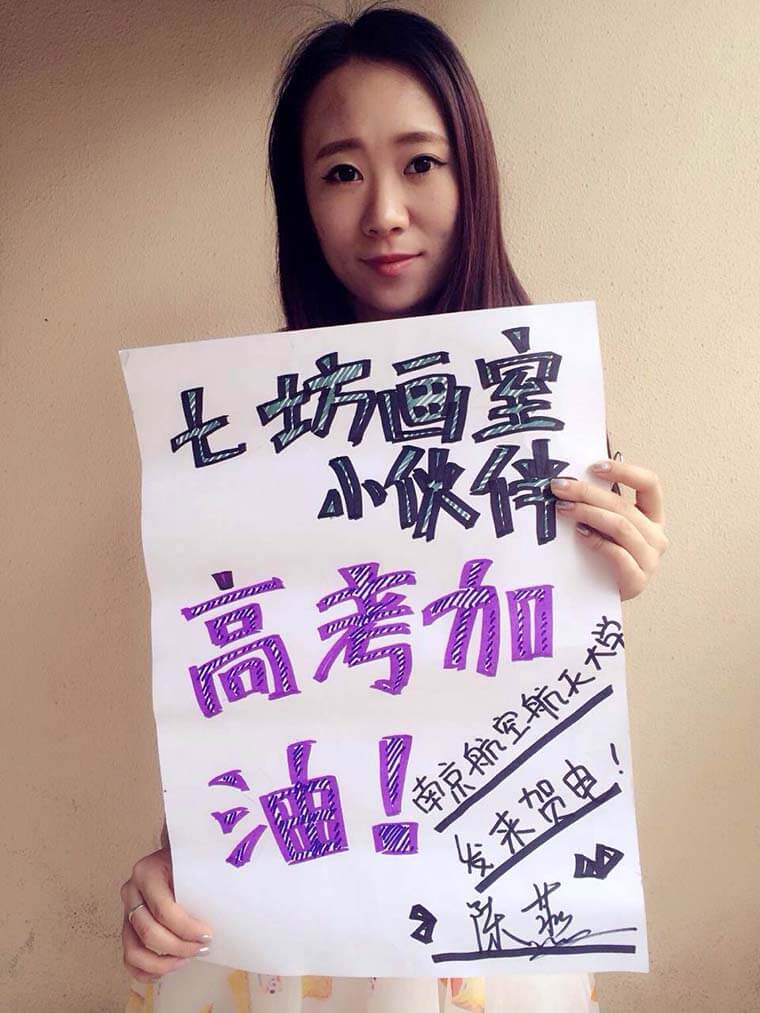 七坊画室
小伙伴
高考加
油！
南京航空航天大学
发来贺电！
陈燕